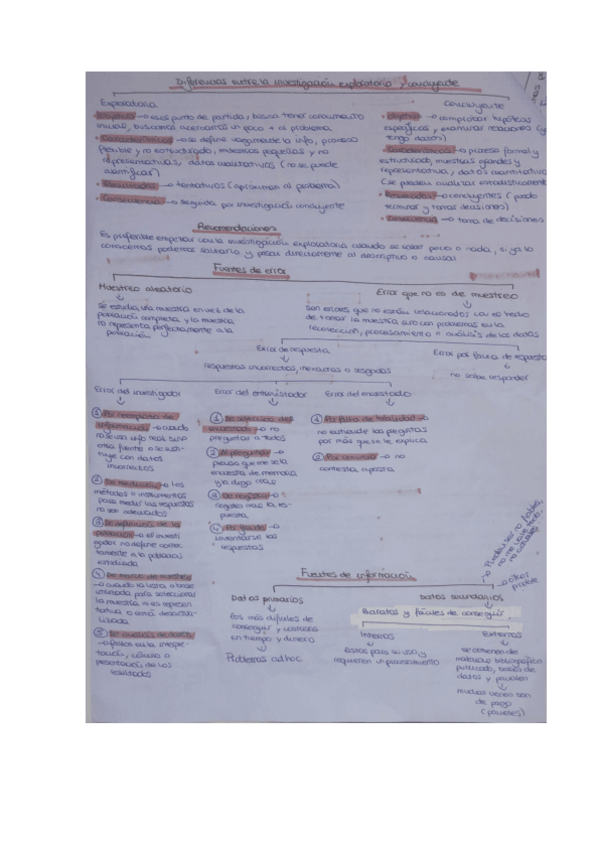 Diferencias entre la investigación exploratoria y concluyente
Exploratoria
· Objetivo → es el punto de partida, busca tener conocimiento
inicial, buscamos acercarnos un poco + al problema
· Características → se define vagamente la info, proceso
flexible y no estructurado, muestras pequeñas y no
representativas, datos cualitativos (no se puede
cuantificar)
· Resultados → tentativos (aproximan al problema)
· Consecuencia → seguida por investigación concluyente
Concluyente
· Objetivo → comprobar hipótesis
específicas, y examinar relaciones (ya
tengo datos)
· Características → proceso formal y
estructurado, muestras grandes y
representativa, datos cuantitativos
(se pueden analizar estadísticamente
· Resultados → concluyentes (puedo
terminar y tomar decisiones)
· Consecuencia → toma de decisiones
Recomendaciones
Es preferible empezar con la investigación exploratoria cuando se sabe poco o nada, si ya lo
conocemos podemos saltarlo y pasar directamente al descriptivo o causal
Fuentes de error
Muestreo aleatorio
Se estudia una muestra en vez de la
población completa y la muestra
no representa perfectamente a la
población
Error que no es de muestreo
Son errores que no están relacionados con el hecho
de tomar la muestra sino con problemas en la
recolección, procesamiento o análisis de los datos
Error de respuesta
Respuestas incorrectas, inexactas o sesgadas
Error por falta de respuesta
no saben responder
Error del investigador
1 Por reemplazo de
información → cuando
no se usa info real sino
otra fuente o se susti-
tuye con datos
incorrectos
2 De medición → los
métodos o instrumentos
para medir las respuestas
no son adecuados
3 De definición de la
población → el investi
gador no define correc
tamente a la población
estudiada
4 De marco de muestreo
→ cuando la lista o base
utilizada para seleccionar
la muestra no es represen
tativa o está desactua-
lizada
5 De análisis de datos
→ fallos en la interpre-
tación, cálculo o
presentación de los
resultados
Error del entrevistador
1 De selección del
encuestado → no
preguntar a todos
2 Al preguntar →
encuesta de memoria
3 De registro →
registro mal la res-
puesta
4 Por fraude →
inventarse las
respuestas
Error del encuestado
1 Por falta de habilidad →
no entiende las preguntas
por más que se le explica
→ no
contesta aposta
Fuentes de información
Datos primarios
Son más difíciles de
conseguir y costosos
en tiempo y dinero
Problemas ad hoc
Datos secundarios
Baratos y fáciles de conseguir
Internos
listos para su uso y
requieren un procesamiento
Externos
se obtienen de
materiales bibliográficos
publicado, bases de
datos y paneles
muchas veces son
de pago
(paneles)